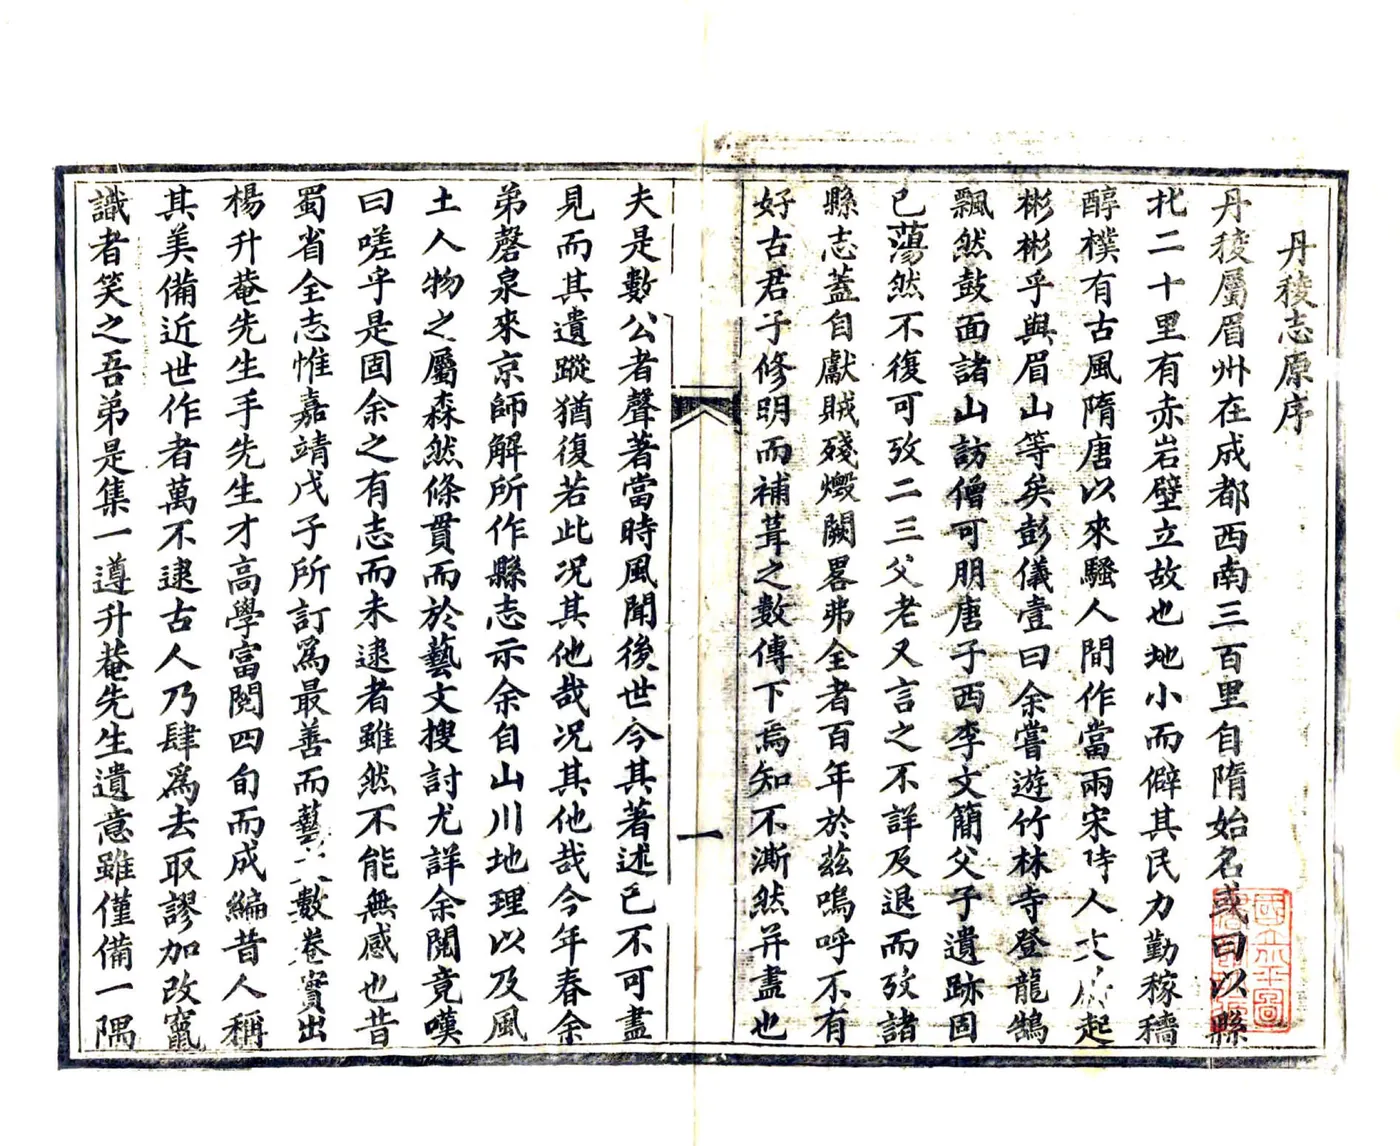 丹稜志原序
丹稜屬眉州在成都西南三百里自隋始名或曰以縣
北二十里有赤岩壁立故也地小而僻其民力勤稼穡
醇樸有古風隋唐以來騷人間作當兩宋時人文蔚起
彬彬乎與眉山等矣彭儀壹曰余嘗遊竹林寺登龍鵠
飄然鼓面諸山訪僧可朋唐子西李文簡父子遺跡固
已蕩然不復可攷二三父老又言之不詳及退而攷諸
縣志蓋自獻賊殘燬闕畧弗全者百年於茲嗚呼不有
好古君子修明而補葺之數傳下焉知不澌然并盡也
一
夫是數公者聲著當時風聞後世今其著述已不可盡
見而其遺蹤猶復若此况其他哉况其他哉今年春余
弟磬泉來京師解所作縣志示余自山川地理以及風
土人物之屬森然條貫而於藝文搜討尤詳余閱竟嘆
曰嗟乎是固余之有志而未逮者雖然不能無感也昔
蜀省全志惟嘉靖戊子所訂爲最善而藝文數卷實出
楊升菴先生手先生才高學富閱四旬而成編昔人稱
其美備近世作者萬不逮古人乃肆爲去取謬加改竄
識者笑之吾弟是集一遵升菴先生遺意雖僅備一隅